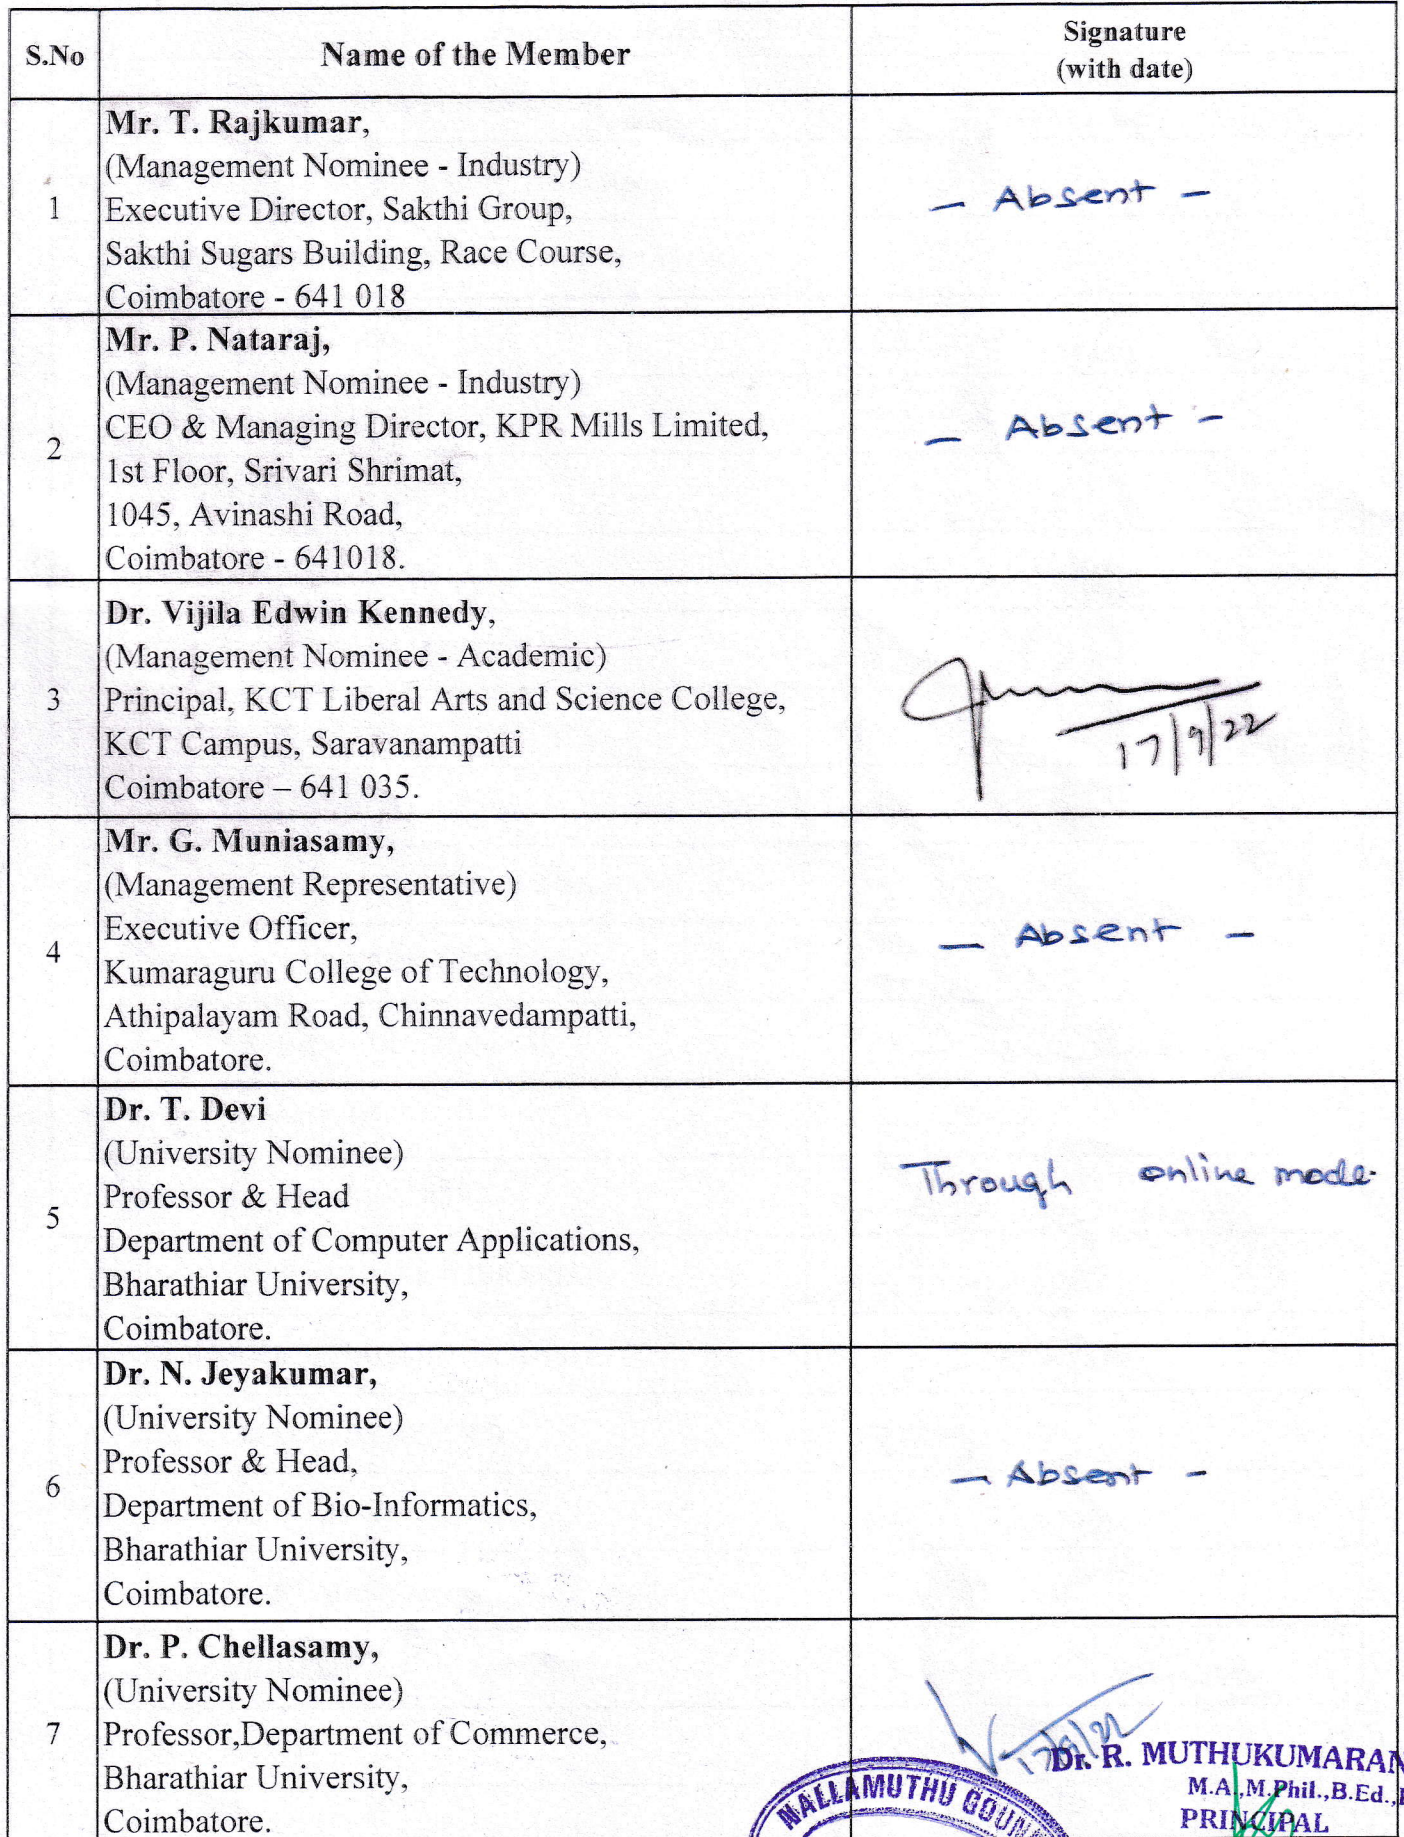 S.No
Name of the Member
Signature
(with date)
1
Mr. T. Rajkumar,
(Management Nominee - Industry)
Executive Director, Sakthi Group,
Sakthi Sugars Building, Race Course,
Coimbatore - 641 018
- Absent -
2
Mr. P. Nataraj,
(Management Nominee - Industry)
CEO & Managing Director, KPR Mills Limited,
1st Floor, Srivari Shrimat,
1045, Avinashi Road,
Coimbatore - 641018.
- Absent -
3
Dr. Vijila Edwin Kennedy,
(Management Nominee - Academic)
Principal, KCT Liberal Arts and Science College,
KCT Campus, Saravanampatti
Coimbatore – 641 035.
17/9/22
4
Mr. G. Muniasamy,
(Management Representative)
Executive Officer,
Kumaraguru College of Technology,
Athipalayam Road, Chinnavedampatti,
Coimbatore.
- Absent -
5
Dr. T. Devi
(University Nominee)
Professor & Head
Department of Computer Applications,
Bharathiar University,
Coimbatore.
Through online mode.
6
Dr. N. Jeyakumar,
(University Nominee)
Professor & Head,
Department of Bio-Informatics,
Bharathiar University,
Coimbatore.
- Absent -
7
Dr. P. Chellasamy,
(University Nominee)
Professor,Department of Commerce,
Bharathiar University,
Coimbatore.
17/9/22
Dr. R. MUTHUKUMARAN
M.A.,M.Phil.,B.Ed.,
PRINCIPAL
NALLAMUTHU GOUN